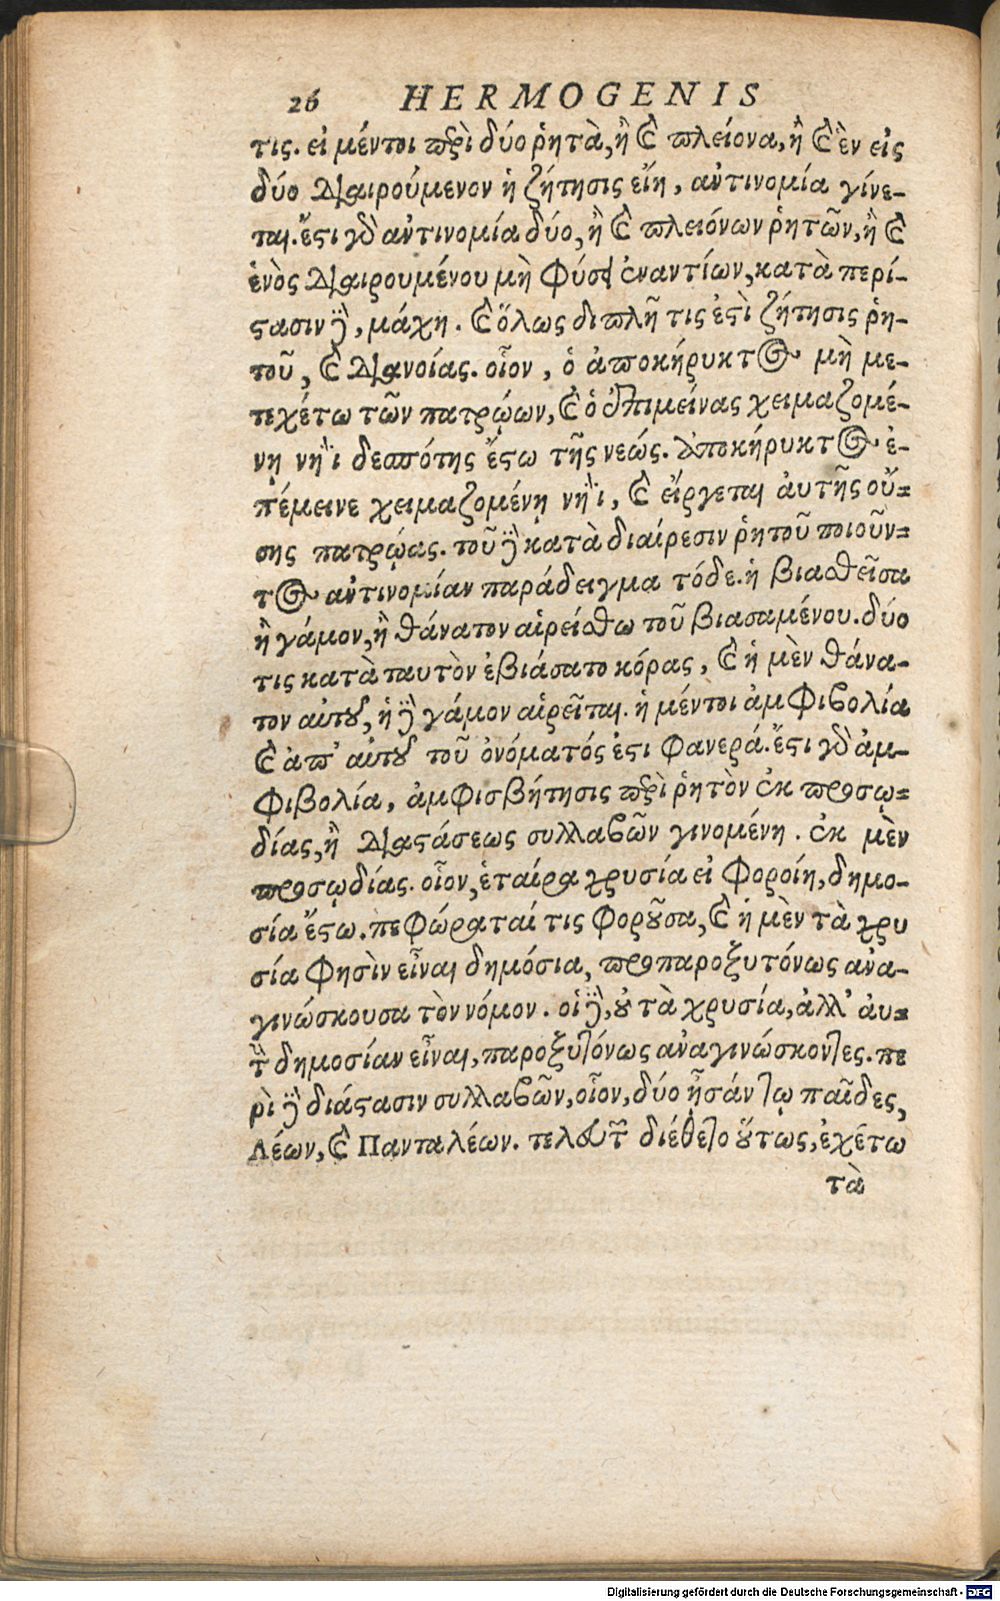 26 HERMOGENIS
τις. εἰ μέντοι περὶ δύο ῥητὰ, ἢ καὶ πλείονα, ἢ καὶ ἓν εἰς
δύο διαιρούμενον ἡ ζήτησις εἴη, ἀντινομία γίνε-
ται. ἔστι γὰρ ἀντινομία δύο, ἢ καὶ πλειόνων ῥητῶν, ἢ καὶ
ἑνὸς διαιρουμένου μὴ φύσει ἐναντίων, κατὰ περί-
στασιν δὲ, μάχη. καὶ ὅλως διπλῆ τις ἐστὶ ζήτησις ῥη-
τοῦ, καὶ διανοίας. οἷον, ὁ ἀποκήρυκτος μὴ με-
τεχέτω τῶν πατρῴων, καὶ ὁ ἐπιμείνας χειμαζομέ-
νῃ νηῒ δεσπότης ἔστω τῆς νεώς. ἀποκήρυκτος ἐ-
πέμεινε χειμαζομένῃ νηῒ, καὶ εἴργεται αὐτῆς οὔ-
σης πατρῴας. τοῦ δὲ κατὰ διαίρεσιν ῥητοῦ ποιοῦν-
τος ἀντινομίαν παράδειγμα τόδε. ἡ βιασθεῖσα
ἢ γάμον, ἢ θάνατον αἱρείσθω τοῦ βιασαμένου. δύο
τις κατὰ ταυτὸν ἐβιάσατο κόρας, καὶ ἡ μὲν θάνα-
τον αὐτοῦ, ἡ δὲ γάμον αἱρεῖται. ἡ μέντοι ἀμφιβολία
καὶ ἀπ' αὐτοῦ τοῦ ὀνόματός ἐστι φανερά. ἔστι γὰρ ἀμ-
φιβολία, ἀμφισβήτησις περὶ ῥητὸν ἐκ προσῳ-
δίας, ἢ διαστάσεως συλλαβῶν γινομένη. ἐκ μὲν
προσῳδίας. οἷον, ἑταίρα χρυσία εἰ φοροίη, δημο-
σία ἔστω. πεφώραταί τις φοροῦσα, καὶ ἡ μὲν τὰ χρυ
σία φησὶν εἶναι δημόσια, προπαροξυτόνως ἀνα-
γινώσκουσα τὸν νόμον. οἱ δὲ, οὐ τὰ χρυσία, ἀλλ' αὐ-
τὴν δημοσίαν εἶναι, παροξυτόνως ἀναγινώσκοντες. πε
ρὶ δὲ διάστασιν συλλαβῶν, οἷον, δύο ἦσάν τῳ παῖδες,
Λέων, καὶ Πανταλέων. τελευτῶν διέθετο οὕτως, ἐχέτω
τὰ
Digitalisierung gefördert durch die Deutsche Forschungsgemeinschaft - DFG